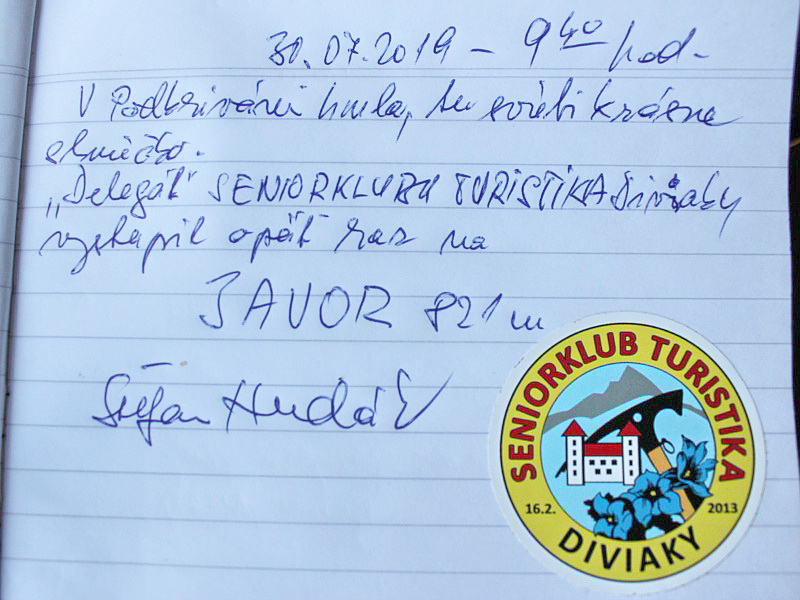 30.07.2019 – 9⁴⁰ hod.
V Podkriváni hmla, tu svieti krásne
slniečko.
„Delegát" SENIORKLUBU TURISTIKA Diviaky
vystúpil opäť raz na
JAVOR 821 m
Štefan Hudák
SENIORKLUB TURISTIKA
16.2. 2013
DIVIAKY